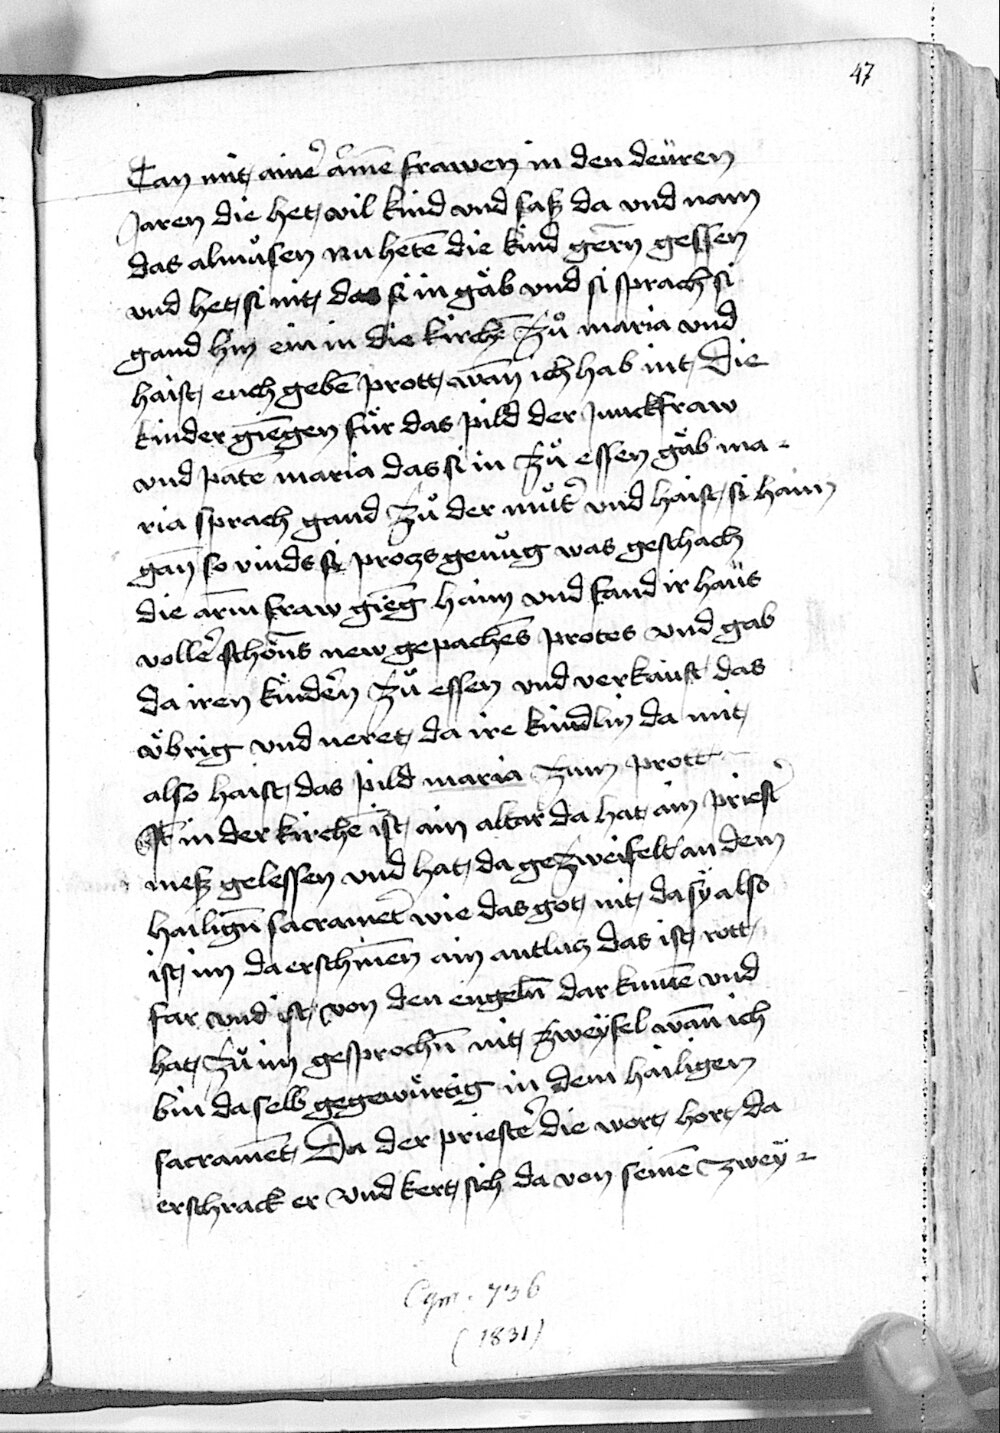 47
Tan mit ainer̄ armē frawen in den deüren
Jaren die het vil kind vnd saß da vnd nam
das almůsen Nu hetē die kind gern̄ gessen
vnd het si nit das si in gäb vnd si sprach si
gand hin ein in die kirchē zů maria vnd
haist euch gebē prott wān ich hab nit Die
kinder giengen für das pild der Junckfraw
vnd patē maria das si in zů essen gäb ma-
ria sprach gand zů der můtr̄ vnd haist si haim
gān so vinds si protzs genůg was geschach
die arm fraw gieng haim vnd fand ir haüs
vollr̄ schöns new gepachēs protes vnd gab
da iren kindern̄ zů essen vnd verkauft das
übrig vnd neret da ire kindlin da mit
also haist das pild maria zum prott
Jt̄ in der kirchē ist ain altar da hat ain priestr̄
meß gelessen vnd hat da gezweifelt an dem
hailign̄ sacramēt wie das got nit da sÿ also
ist im da erschinēn ain antlutz das ist rott
far vnd ist von den engeln̄ dar kumē vnd
hat zů im gesprochn̄ nit zweÿfel wān ich
bin da selb gegewürtig in dem hailigen
sacramēt Da der priestr̄ die wort hort da
erschrack er vnd kert sich da von seinē zweÿ-
Cgm. 736
(1831)